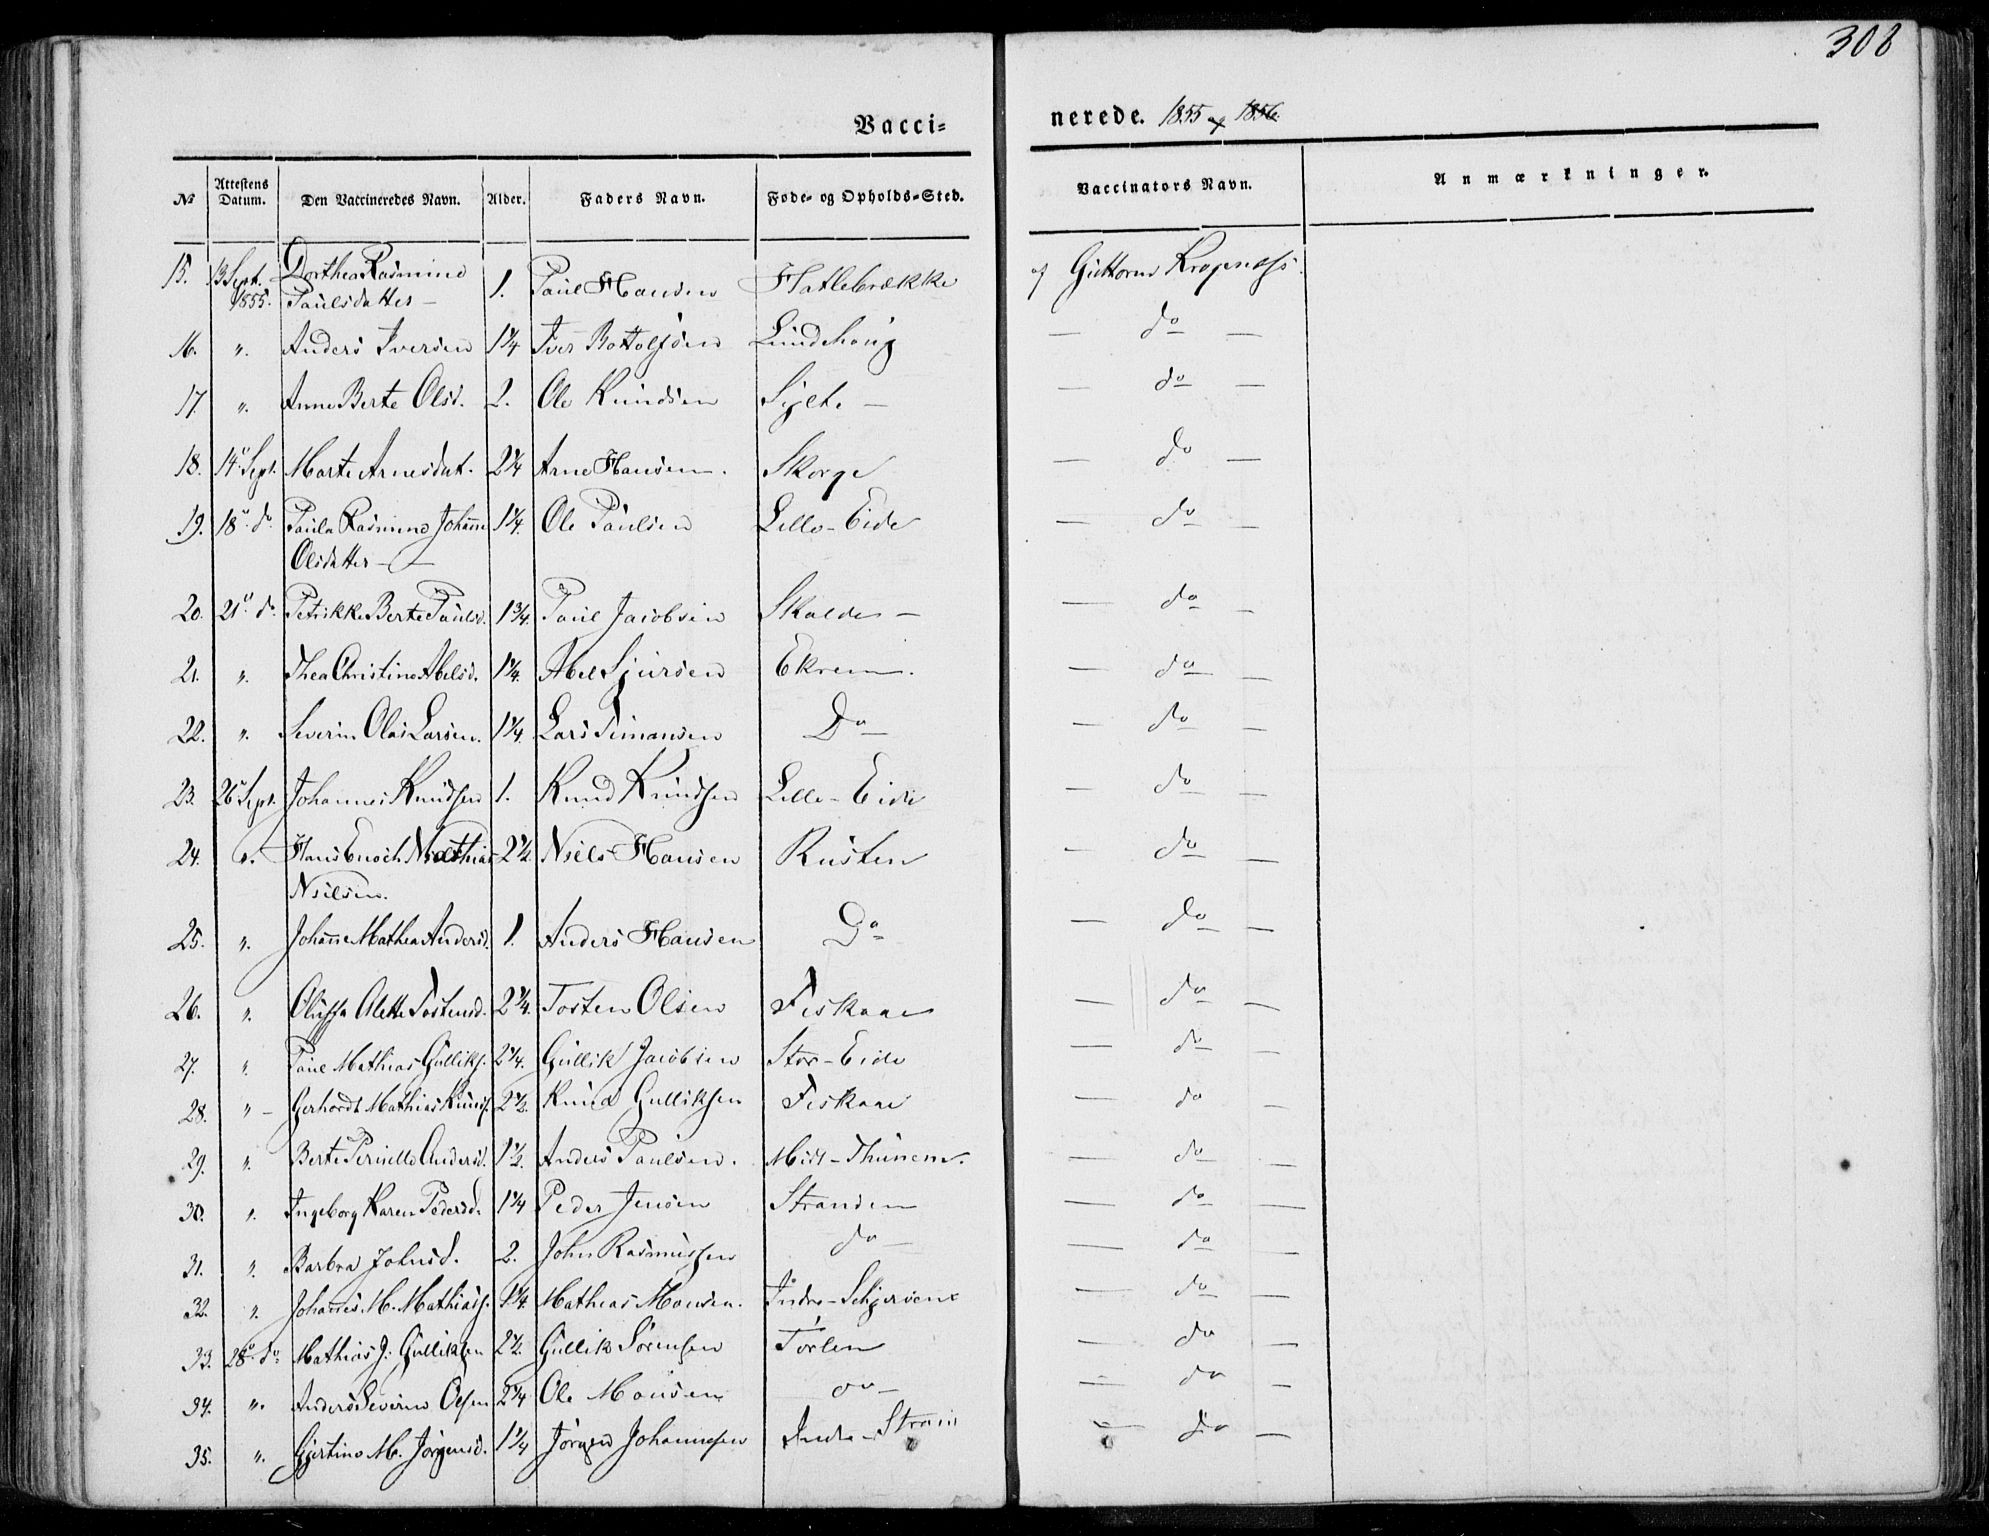 308
Vacci- nerede. 1855 og 1856.
№ Attestens Datum. Den Vaccineredes Navn. Alder. Faders Navn. Føde- og Opholds-Sted. Vaccinators Navn. Anmærkninger.
15. 13 Sept. 1855. Dorthea Rasmine Paulsdatter — 1. Paul Hansen Hatlebrække af Guttorm Kragenæss.
16. ". Anders Iversen 1 1/4 Iver Bottolfsen Lindehoug — do —
17. ". Anne Berte Olsd. 2. Ole Knudsen Sylte — — do —
18. 14 Sept. Marte Arnesdat. 2 1/4 Arne Hansen. Skorge — do —
19. 18 do. Paula Rasmine Johanne Olsdatter — 1 1/4. Ole Paulsen Lille-Eide — do —
20. 21 do. Petrikke Berte Paulsd. 1 3/4. Paul Jacobsen Skalde — — do —
21. ". Thea Christine Abelsd. 1 1/4. Abel Sjursen Ekrem. — do —
22. ". Severin Olai Larsen. 1 1/4. Lars Timansen Do — do —
23. 26 Sept. Johannes Knudsen 1. Knud Knudsen Lille-Eide — do —
24. ". Hans Enoch Mathias Nielsen. 2 1/2 Niels Hansen Rusten — do —
25. ". Johanne Mathea Andersd. 1. Anders Hansen Do — do —
26. ". Oluffa Olette Tostensd. 2 1/4. Tosten Olsen Fiskaae — do —
27. ". Paul Mathias Gulliks. 2 1/4. Gullik Jacobsen Stor-Eide — do —
28. " — Gerhardt Mathias Knuds. 2 1/2. Knud Gulliksen Fiskaae — do —
29. ". Berte Pernille Andersd. 1 1/2. Anders Paulsen. Midt-Thunem. — do —
30. ". Ingeborg Karen Pedersd. 1 1/4 Peder Jensen Stranden — do —
31. ". Barbra Johnsd. 2. John Rasmussen do — — do —
32. ". Johannes M. Mathiass. 1 1/4. Mathias Monsen. Indre-Schjervene — do —
33. 28 do Mathias J. Gulliksen 2 1/2. Gullik Sørensen Tørlen — do —
34. ". Anders Severin Olsen 2 1/4 Ole Monsen do — — do —
35. ". Gjertine M. Jørgensd. 1 1/4 Jørgen Johannesen Indre-Strain — do —